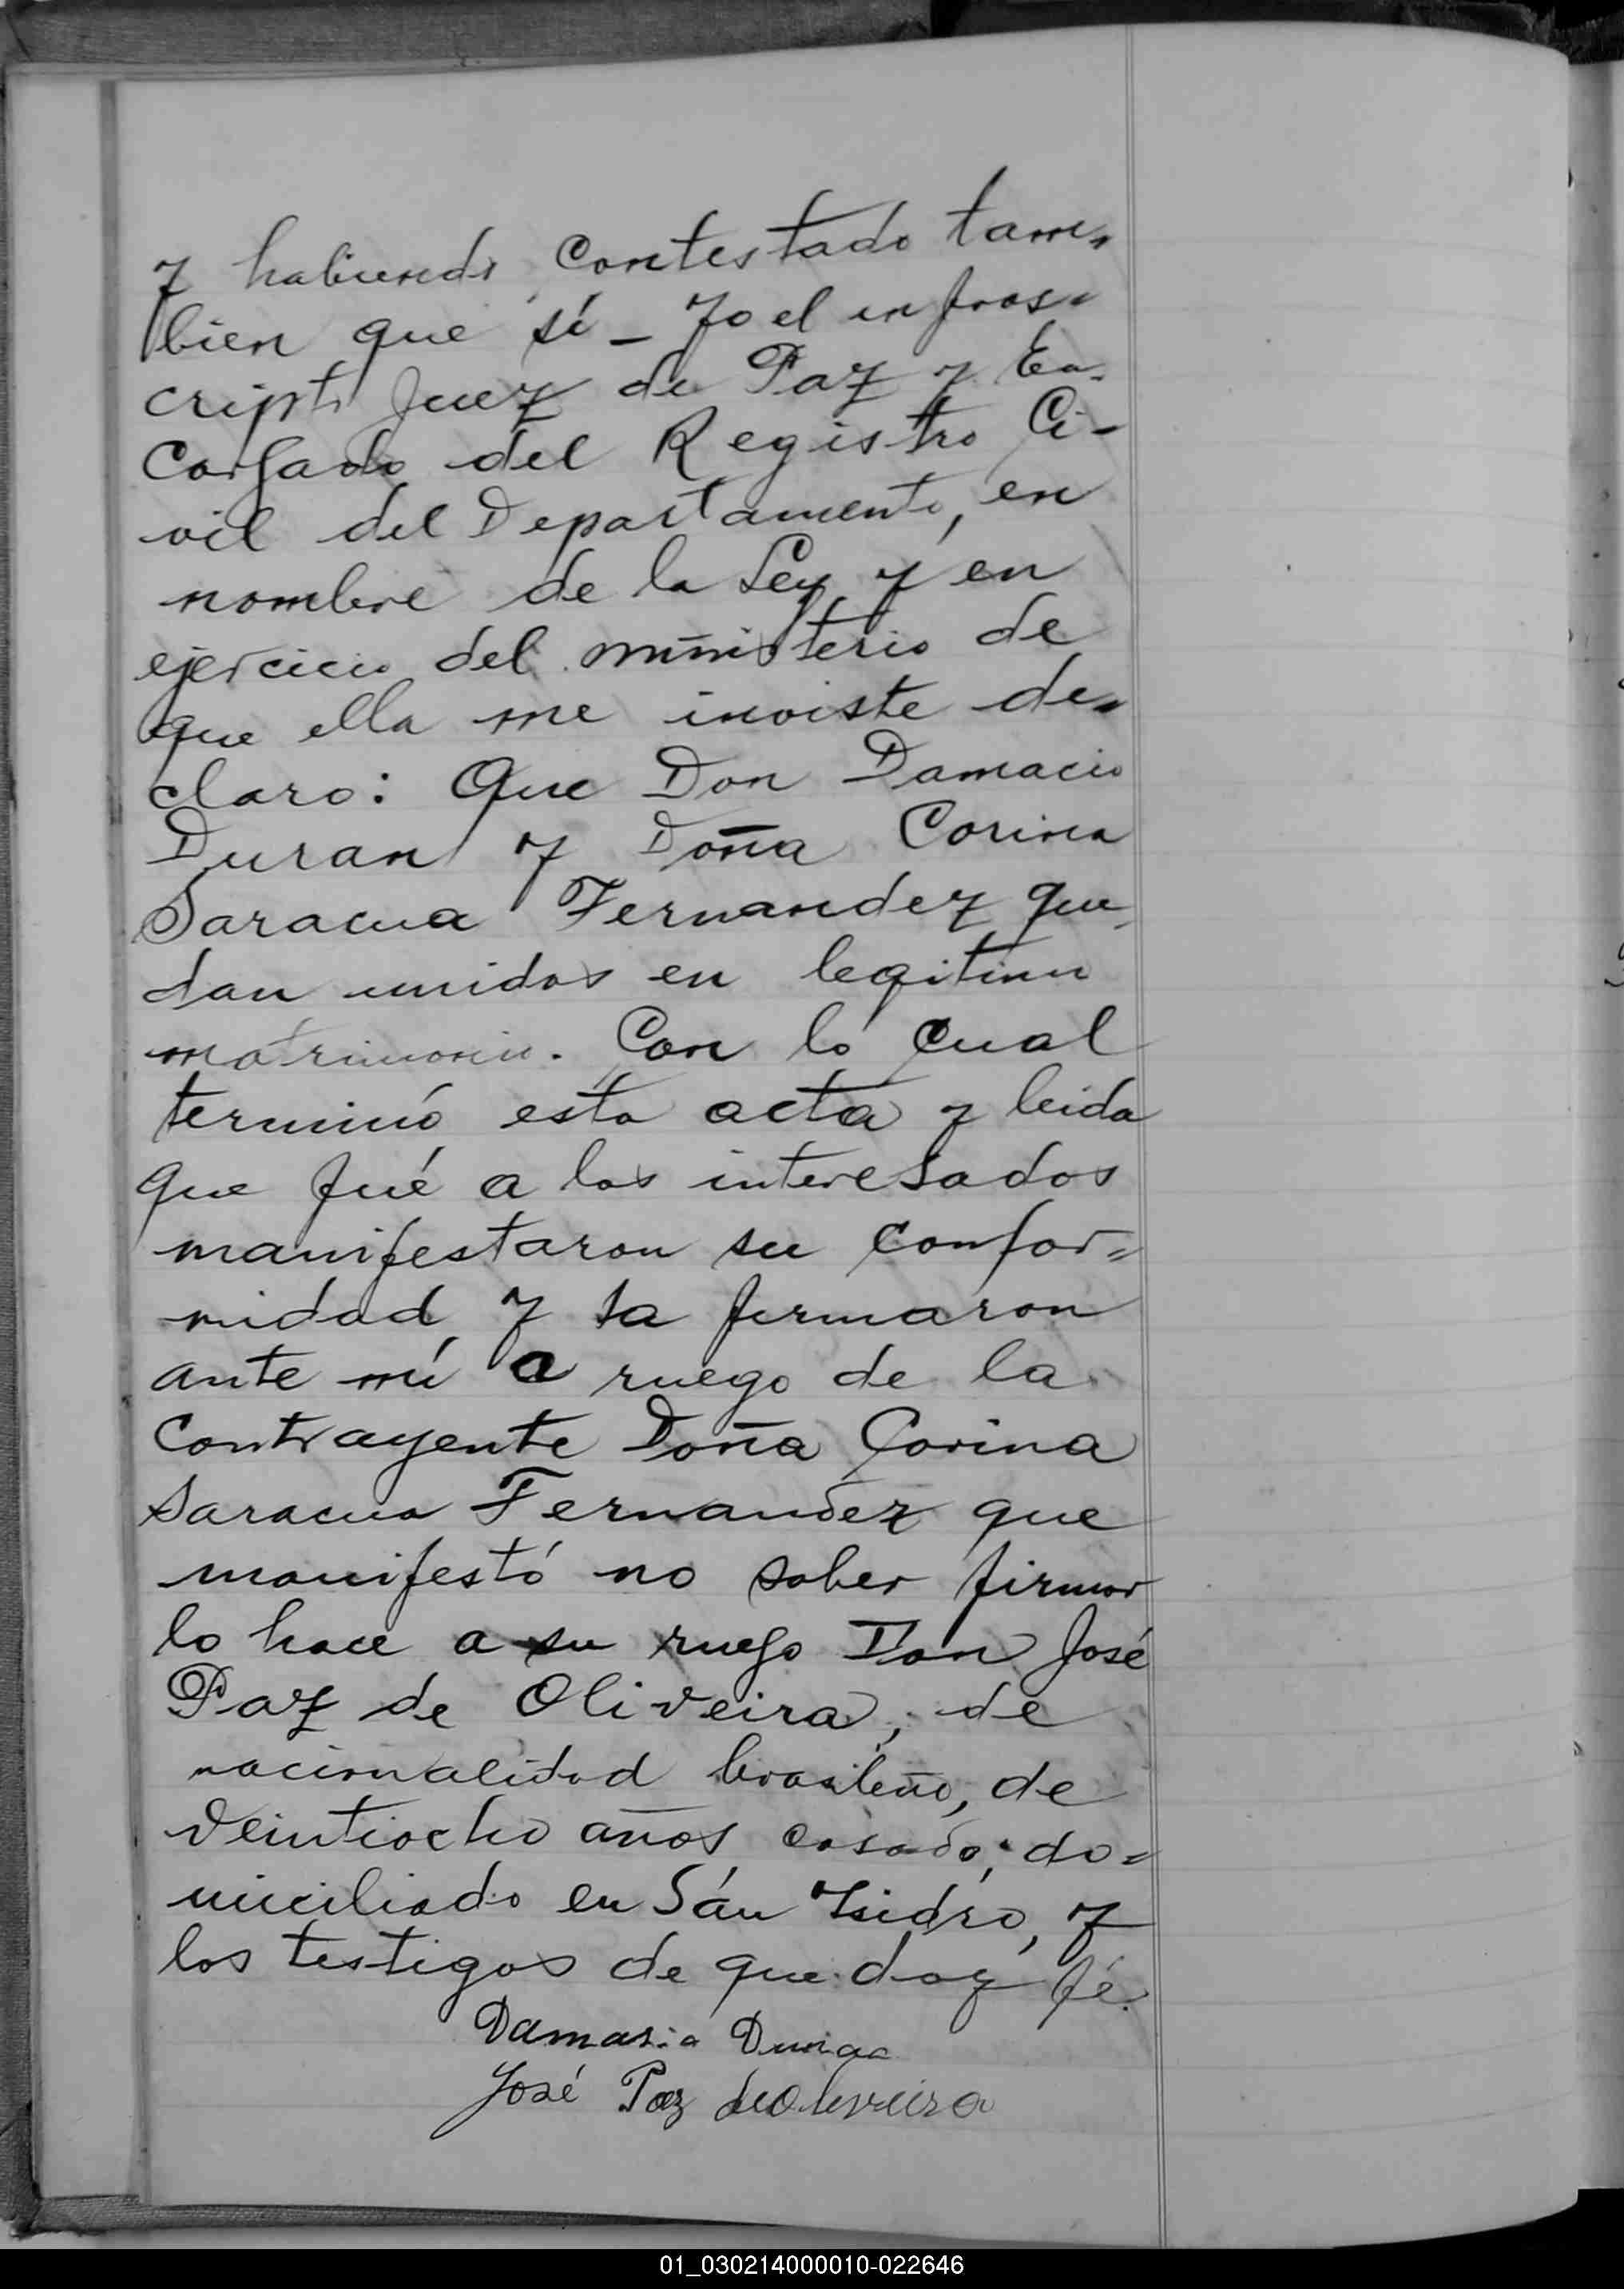 y habiendo contestado tam=
bien que sí _ Yo el infras=
cripto Juez de Paz y En-
cargado del Registro Ci-
vil del Departamento, en
nombre de la Ley y en
ejercicio del ministerio de
que ella me inviste de=
claro: Que Don Damacio
Duran y Doña Corina
Saracua Fernandez que
dan unidos en legitimo
matrimonio. Con lo cual
terminó esta acta y leida
que fué a los interesados
manifestaron su confor=
midad y la firmaron
ante mí a ruego de la
contrayente Doña Corina
Saracua Fernandez que
manifestó no saber firmar
lo hace a su ruego Don José
Paz de Oliveira, de
nacionalidad brasileño, de
veintiocho años casado, do=
miciliado en San Isidro, y
los testigos de que doy fé.
Damasio Duran
José Paz de Oliveira
01_030214000010-022646